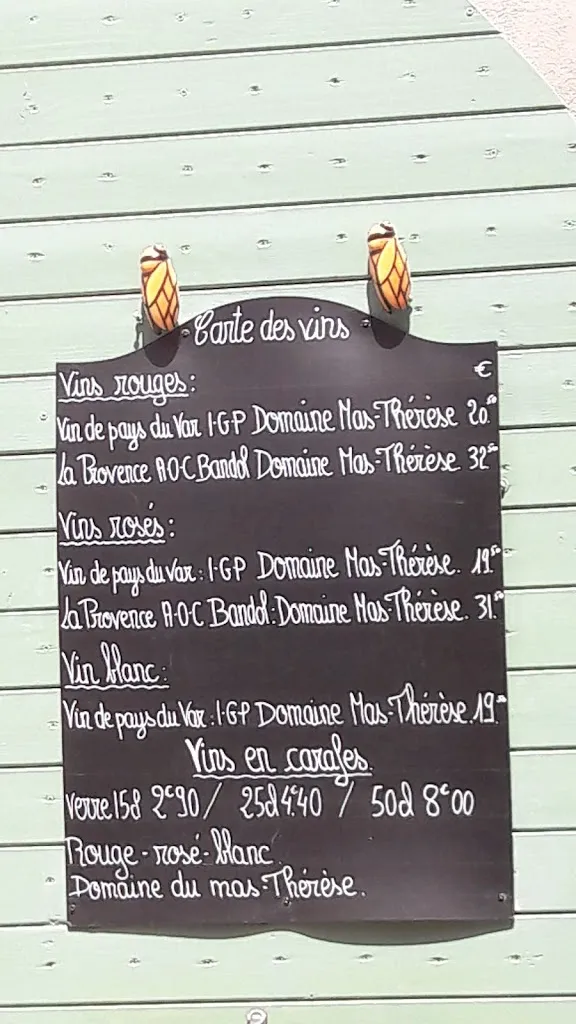 Carte des vins
€
Vins rouges:
Vin de pays du Var I·G·P Domaine Mas-Thérèse 20.
La Provence A·O·C Bandol Domaine Mas-Thérèse. 32
Vins rosés:
Vin de pays du Var: I·G·P Domaine Mas-Thérèse. 19
La Provence A·O·C Bandol: Domaine Mas-Thérèse. 31.
Vin blanc:
Vin de pays du Var: I·G·P Domaine Mas-Thérèse. 19.
Vins en carafes.
Verre 15cl 2€90 / 25cl 4€40 / 50cl 8€00
Rouge - rosé - blanc
Domaine du mas-Thérèse.